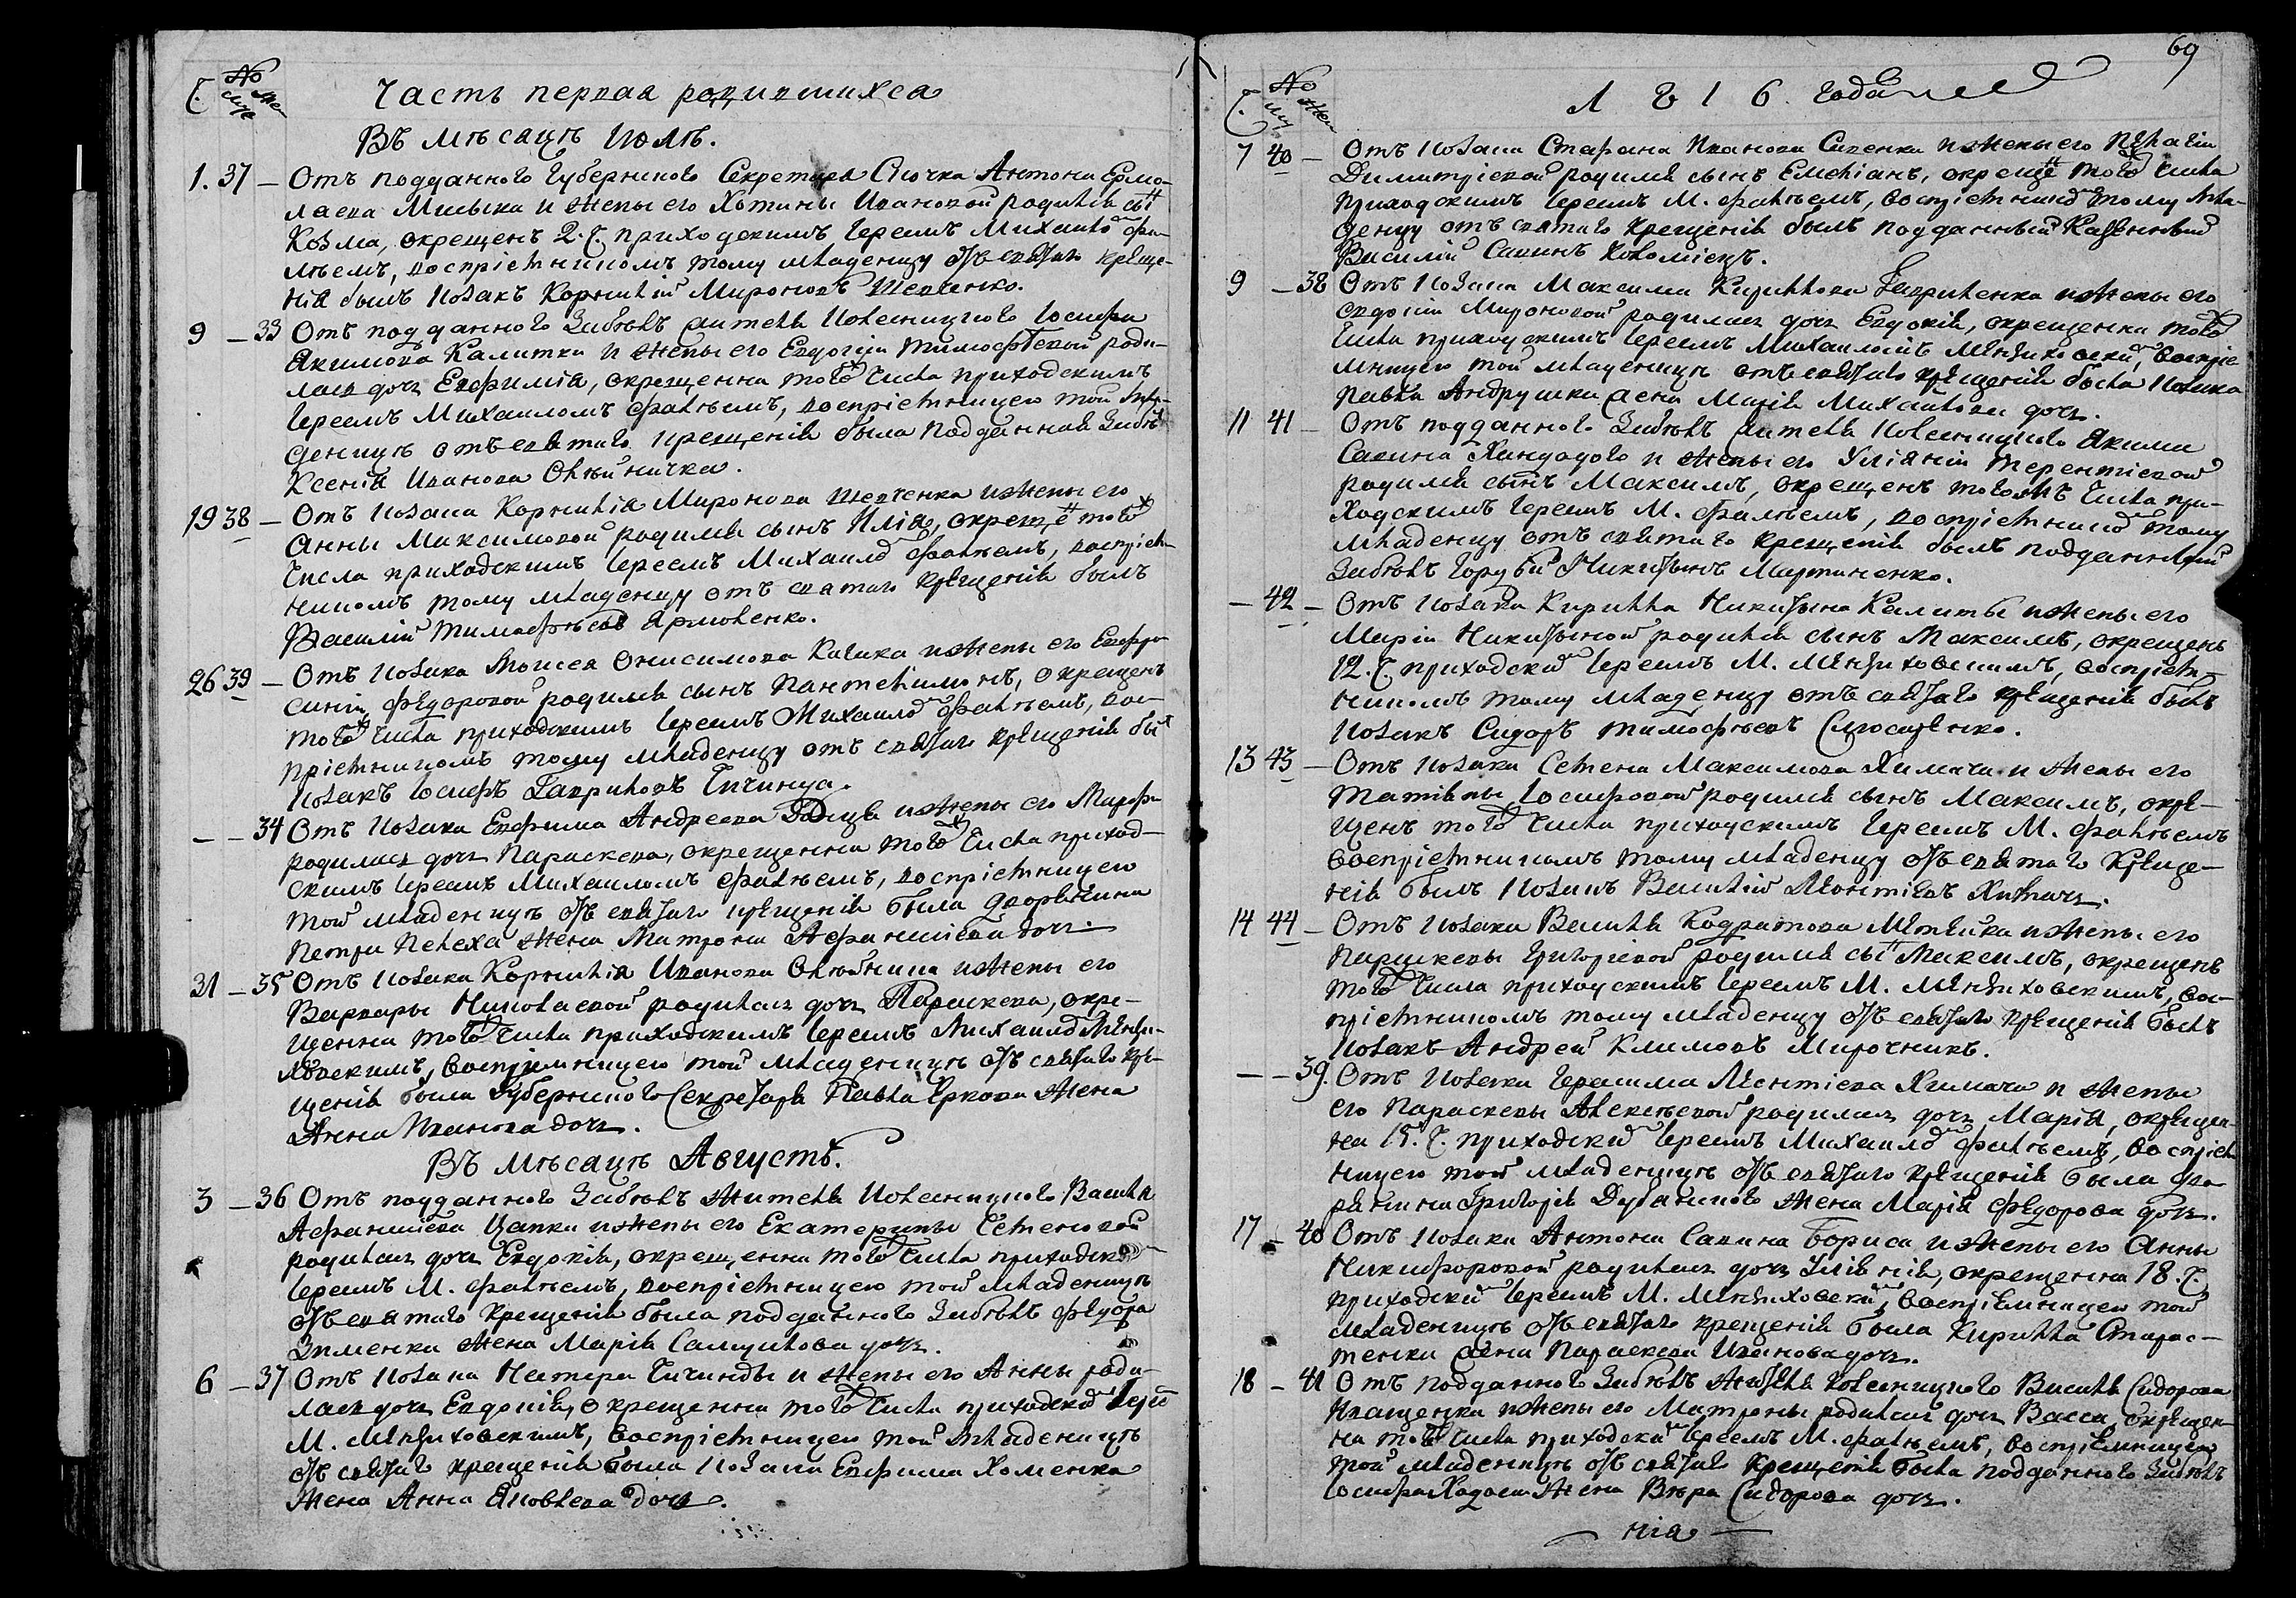 Ч. № муж жен
Часть первая родившихся
Въ мѣсяцѣ Июлѣ.
1. 37 — Отъ подданного Губернского Секретаря Сючка Антона Ермо-
лаева и жены его Ивановой родился сынъ
Козма, окрещенъ 2. ч. приходскимъ Іереемъ Михаиломъ Фа-
лѣемъ, воспріемникомъ тому младенцу отъ святаго креще-
нія былъ козакъ Корнилій Мироновъ Шевченко.
9 — 33 Отъ подданного Забѣлъ жителя Иовсницкого Іосифа
Якимова Калитки и жены его Евдокіи Тимофѣевой роди-
лась дочь Евфимія, окрещенна того ж числа приходскимъ
Іереемъ Михаиломъ Фалѣемъ, воспріемницею той мла-
деницѣ отъ святаго крещенія была подданная Забѣлъ
Ксенія Иванова Олѣйничка.
19 38 — Отъ козака Корнилія Миронова Шевченка и жены его
Анны Максимовой родился сынъ Илія, окрещенъ того ж
числа приходскимъ Іереемъ Михаиломъ Фалѣемъ, воспріем-
никомъ тому младенцу отъ святаго крещенія былъ
Василій Тимофѣевъ Ярмоленко.
26 39 — Отъ козака Моисея Онисимова и жены его Евфро-
синіи Федоровой родился сынъ Пантелимонъ, окрещенъ
того ж числа приходскимъ Іереемъ Михаиломъ Фалѣемъ, вос-
пріемникомъ тому младенцу отъ святаго крещенія былъ
козакъ Іосифъ Гавриловъ Чичинда.
— — 34 Отъ козака Евфима Андреева и жены его Марфы
родилась дочь Параскева, окрещенна того ж числа приход-
скимъ Іереемъ Михаиломъ Фалѣемъ, воспріемницею
той младеницѣ отъ святаго крещенія была дворянина
Петра Пелеха жена Матрона Афанасіева дочь.
31 — 35 Отъ козака Корнилія Иванова Олѣйника и жены его
Варвары Николаевой родилась дочь Параскева, окре-
щенна того ж числа приходскимъ Іереемъ Михаиломъ Мензи-
ховскимъ, воспріемницею той младеницѣ отъ святаго кре-
щенія была Губернского Секретаря Павла Еркова жена
Анна Иванова дочь.
Въ мѣсяцѣ Августѣ.
3 — 36 Отъ подданного Забѣлъ жителя Иовсницкого Василя
Афанасіева Цапки и жены его Екатерины Семеновой
родилась дочь Евдокія, окрещенна того ж числа приходским
Іереемъ М. Фалѣемъ, воспріемницею той младеницѣ
отъ святаго крещенія была подданного Забѣлъ Федора
Зименки жена Марія Самуилова дочь.
6 — 37 Отъ козака Нестера Чичинды и жены его Анны роди-
лась дочь Евдокія, окрещенна того ж числа приходским Іерее
М. Мензиховскимъ, воспріемницею той младеницѣ
отъ святаго крещенія была козака Евфима Хоменка
жена Анна Яковлева дочь.
69
Ч. № му жен
1816 года
7 40 — Отъ козака Стефана Иванова Савенки и жены его Пелагіи
Димитріевой родился сынъ Емеліанъ, окреще того ж числа
приходскимъ Іереемъ М. Фалѣемъ, воспріемником тому мла-
денцу отъ святаго крещенія былъ подданный Казенный
Василій Савинъ Коломіецъ.
9 — 38 Отъ козака Максима Кирилова Гавриленка и жены его
Евдокіи Мироновой родилась дочь Евдокія, окрещенна того ж
числа приходскимъ Іереемъ Михаиломъ Мензиховским, воспріе-
мницею той младеницѣ отъ святаго крещенія была козака
Павла Андрушки жена Марія Михайлова дочь.
11 41 — Отъ подданного Забѣлъ жителя Иовсницкого Якима
Савина и жены его Уліяніи Терентіевой
родился сынъ Максимъ, окрещенъ того жъ числа при-
ходскимъ Іереемъ М. Фалѣемъ, воспріемником тому
младенцу отъ святаго крещенія былъ подданный
Забѣлъ Никитинъ Мартиненко.
— 42 — Отъ козака Кирилла Никитина Калиты и жены его
Маріи Никитиной родился сынъ Максимъ, окрещенъ
12. ч. приходским Іереемъ М. Мензиховскимъ, воспріем-
никомъ тому младенцу отъ святаго крещенія былъ
козакъ Сидоръ Тимофѣевъ.
13 43 — Отъ козака Семена Максимова Химача и жены его
Татіяны Іосифовой родился сынъ Максимъ, окре-
щенъ того ж числа приходскимъ Іереемъ М. Фалѣемъ
воспріемникомъ тому младенцу отъ святаго креще-
нія былъ козакъ Василій Леонтіевъ Химачъ.
14 44 — Отъ козака Василя Кодратова и жены его
Параскевы Григоріевой родился сы Максимъ, окрещенъ
того ж числа приходскимъ Іереемъ М. Мензиховскимъ, вос-
пріемникомъ тому младенцу отъ святаго крещенія былъ
козакъ Андрей Климовъ Мирочникъ.
— — 39. Отъ козака Герасима Леонтіева Химача и жены
его Параскевы Алексѣевой родилась дочь Марія, окрещен-
на 15. ч. приходским Іереемъ Михаилом Фалѣемъ, воспріем
ницею той младеницѣ отъ святаго крещенія была дво-
рянина Григорія жена Марія Федорова дочь.
17 — 40 Отъ козака Антона Савина Бориса и жены его Анны
Никифоровой родилась дочь Уліянія, окрещенна 18. ч.
приходским Іереемъ М. Мензиховским, воспріемницею той
младеницѣ отъ святаго крещенія была Кирилла Старос-
тенки жена Параскева Иванова дочь.
18 — 41 Отъ подданного Забѣлъ жителя Иовсницкого Василя Сидорова
Иващенки и жены его Матроны родилась дочь Васса, окрещен-
на того ж числа приходским Іереемъ М. Фалѣемъ, воспріемницею
той младеницѣ отъ святаго крещенія была подданного Забѣлъ
Іосифа жена Вѣра Сидорова дочь.
нія